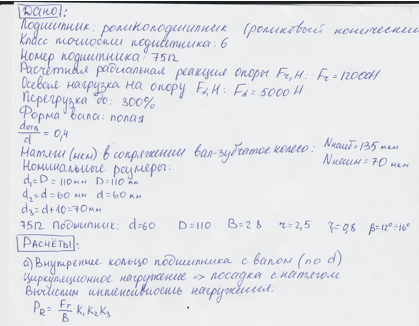 Дано:
Подшипник: роликоподшипник (роликовый конический
Класс точности подшипника: 6
Номер подшипника: 7512
Расчетная радиальная реакция опоры Fr, H: Fr = 12000H
Осевая нагрузка на опору Fa, H: Fa = 5000 H
Перегрузка до: 300%
Форма вала: полая
dотв/d = 0,4
Натяги (мкм) в сопряжении вал-зубчатое колесо: Nнаиб = 135 мкм
Nнаим = 70 мкм
Номинальные размеры:
d1 = D = 110 мм D = 110 мм
d2 = d = 60 мм d = 60 мм
d3 = d + 10 = 70 мм
7512 Подшипник: d=60 D=110 B=28 r=2,5 β=12°÷16°
Расчёты:
а) Внутреннее кольцо подшипника с валом (по d)
Циркуляционное нагружение => посадка с натягом
Вычислим интенсивность нагружения:
PR = Fr/B K1 K2 K3